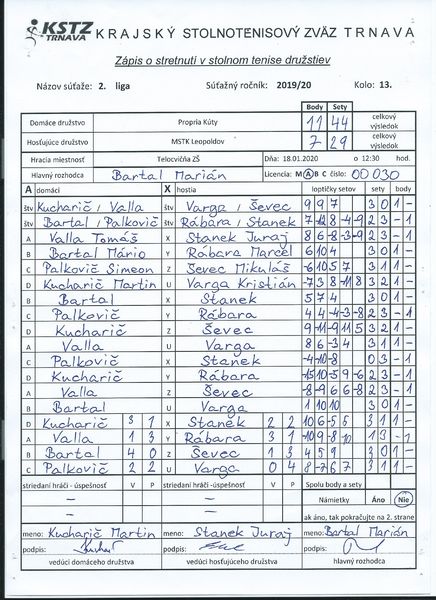 KSTZ TRNAVA KRAJSKÝ STOLNOTENISOVÝ ZVÄZ TRNAVA
Zápis o stretnutí v stolnom tenise družstiev
Názov súťaže: 2. liga Súťažný ročník: 2019/20 Kolo: 13.
Body Sety
Domáce družstvo Propria Kúty 11 44 celkový výsledok
Hosťujúce družstvo MSTK Leopoldov 7 29 celkový výsledok
Hracia miestnosť Telocvičňa ZŠ Dňa: 18.01.2020 o 12:30 hod.
Hlavný rozhodca Bartal Marián Licencia: M A B C číslo: 00030
A domáci X hostia loptičky setov sety body
štv Kucharič / Valla štv Varga / Ševec 9 9 7 3 0 1 -
štv Bartal / Palkovič štv Rábara / Stanek 2 3 - 1
A Valla Tomáš X Stanek Juraj 8 6 -8 -3 -9 2 3 - 1
B Bartal Mário Y Rábara Marcel 6 10 4 3 0 1 -
C Palkovič Simeon Z Ševec Mikuláš -6 10 5 7 3 1 1 -
D Kucharič Martin U Varga Kristián -7 3 8 -11 8 3 2 1 -
B Bartal X Stanek 5 7 4 3 0 1 -
C Palkovič Y Rábara 4 4 -4 -3 -8 2 3 - 1
D Kucharič Z Ševec 9 -11 -9 11 5 3 2 1 -
A Valla U Varga 8 6 -3 4 3 1 1 -
C Palkovič X Stanek -4 -10 -8 0 3 - 1
D Kucharič Y Rábara 2 3 - 1
A Valla Z Ševec -8 -9 6 6 -8 2 3 - 1
B Bartal U Varga 1 10 10 3 0 1 -
D Kucharič 3 1 X Stanek 2 2 10 6 -5 5 3 1 1 -
A Valla 1 3 Y Rábara 3 1 -10 9 -8 -10 1 3 - 1
B Bartal 4 0 Z Ševec 1 3 4 5 9 3 0 1 -
C Palkovič 2 2 U Varga 0 4 8 -7 6 7 3 1 1 -
striedaní hráči - úspešnosť V P striedaní hráči -úspešnosť V P Spolu body a sety
– – Námietky Áno Nie
– – ak áno, tak pokračujte na 2. strane
meno: Kucharič Martin meno: Stanek Juraj meno: Bartal Marián
podpis: podpis: podpis:
vedúci domáceho družstva vedúci hosťujúceho družstva hlavný rozhodca